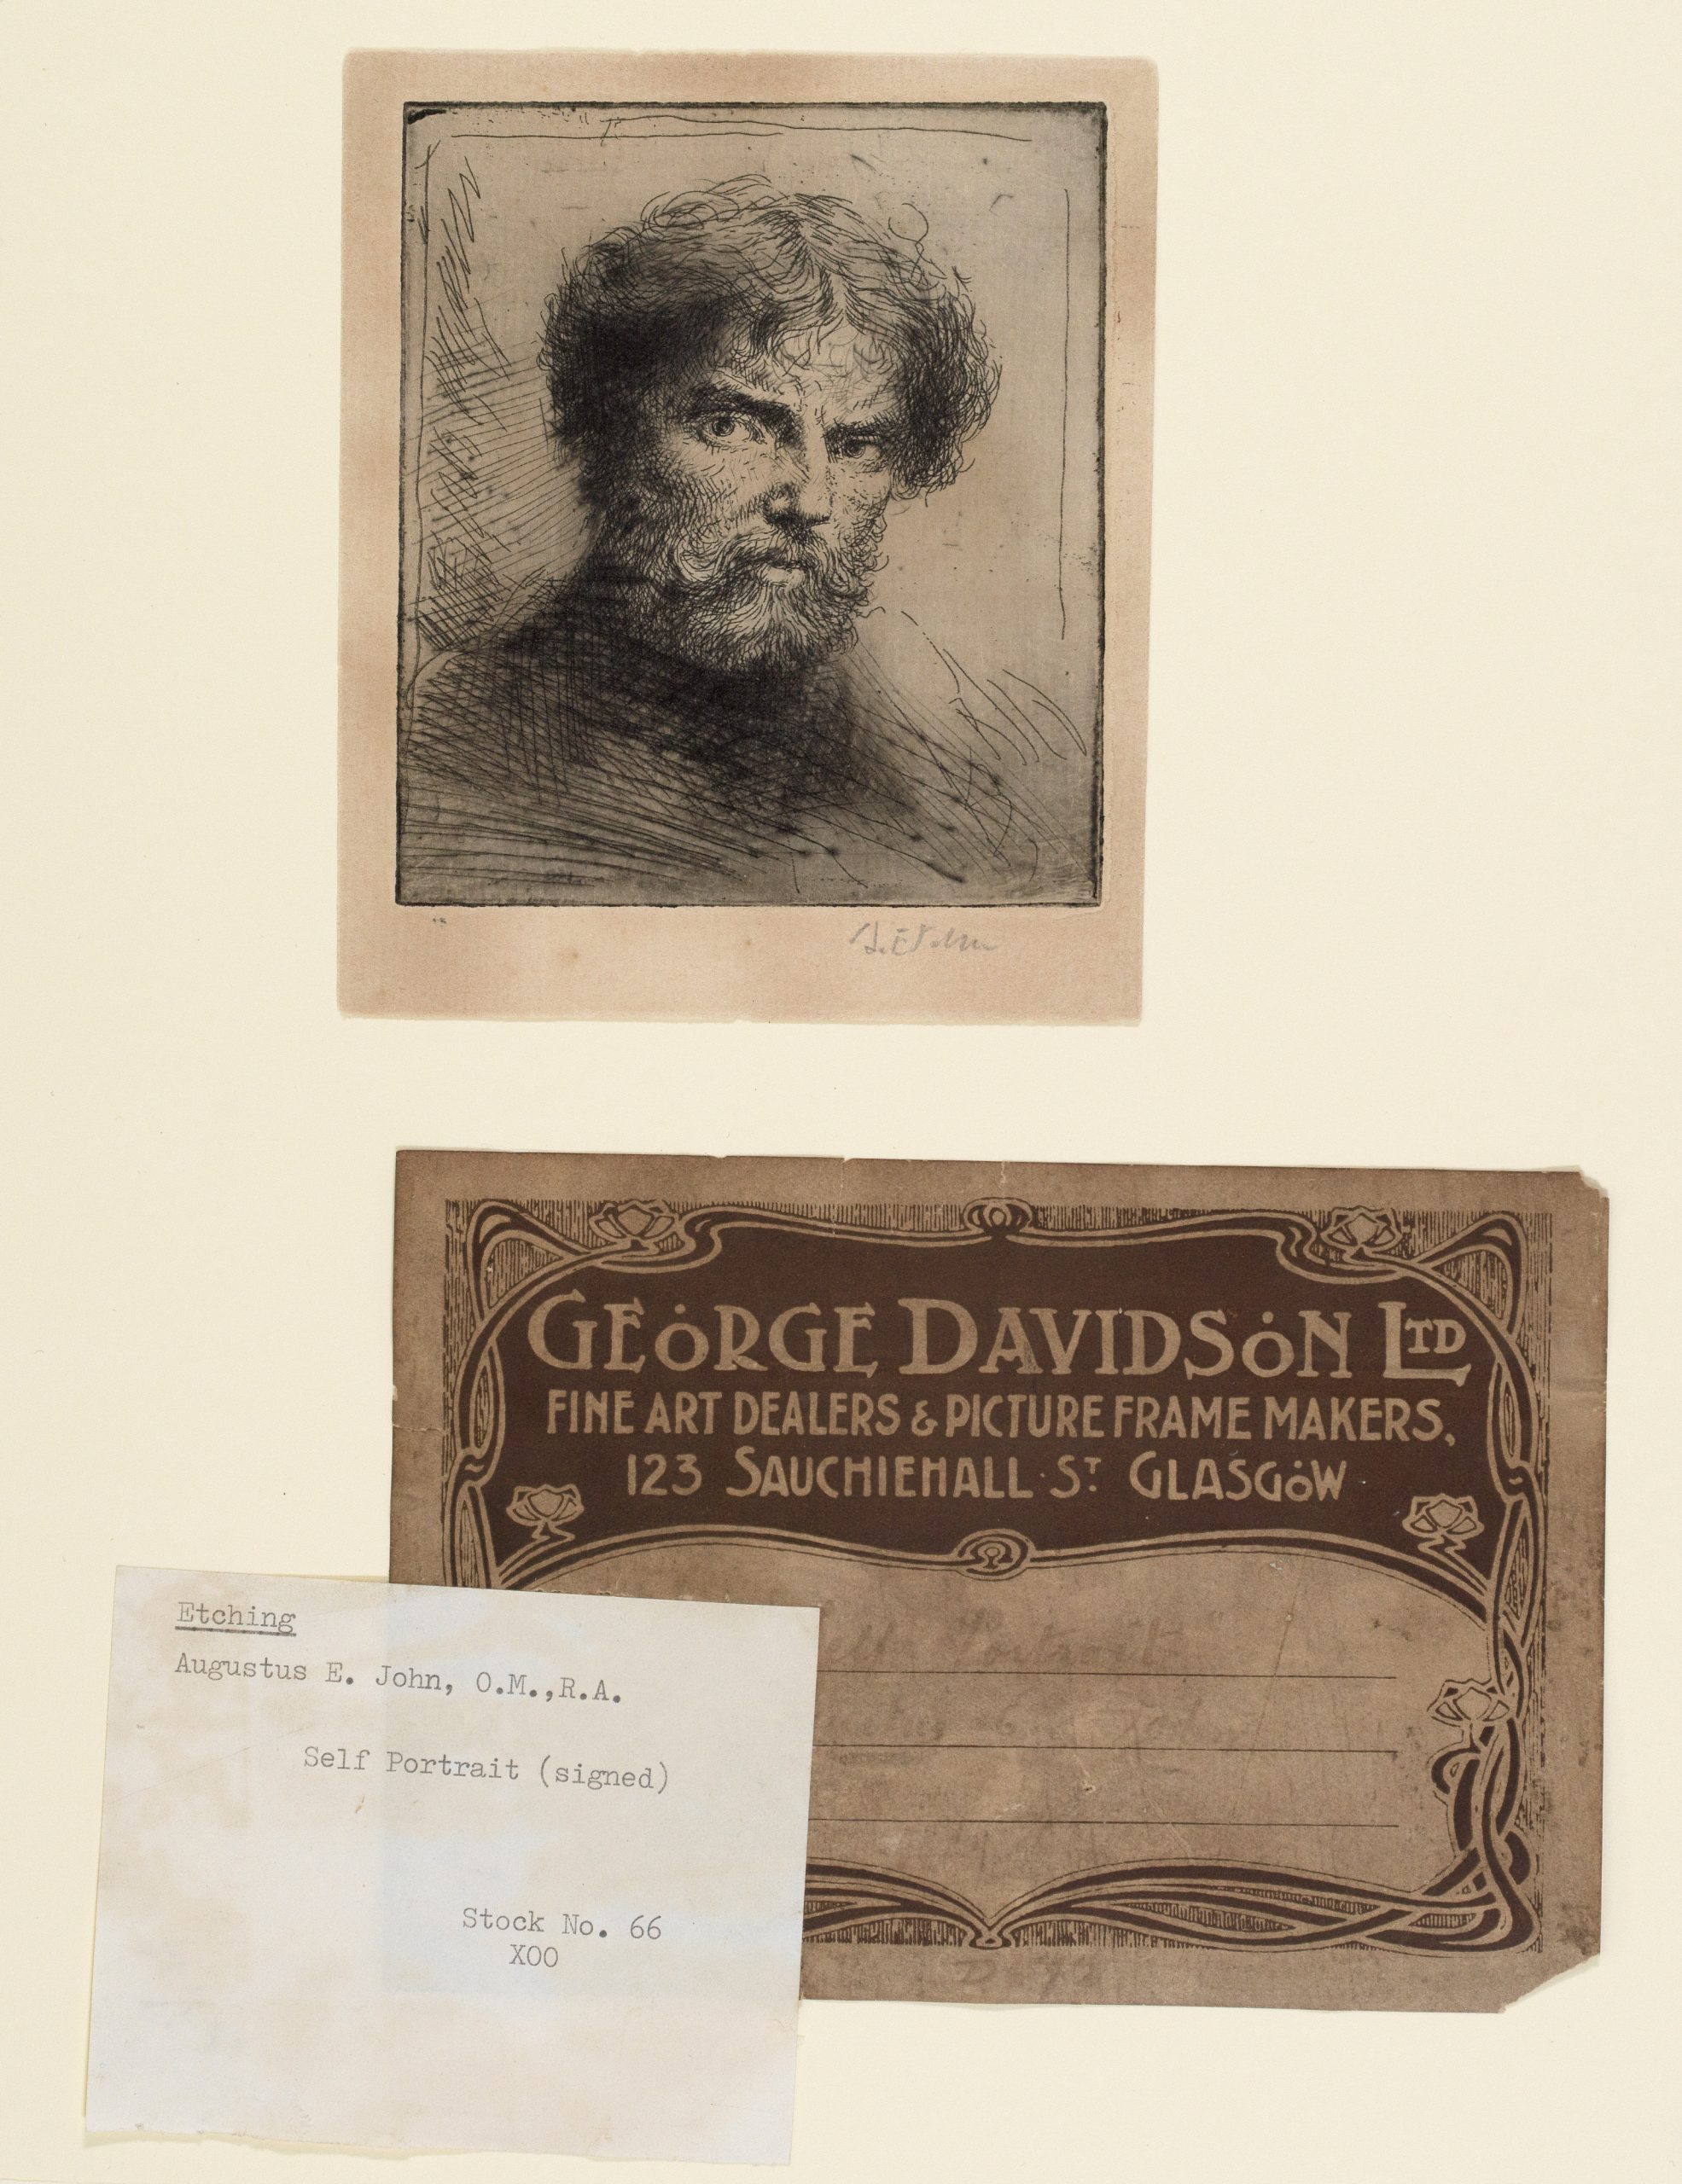 A.E.John
GEORGE DAVIDSON LTD
FINE ART DEALERS & PICTURE FRAME MAKERS,
123 SAUCHIEHALL · ST GLASGOW
Portrait
Etching
Augustus E. John, O.M.,R.A.
Self Portrait (signed)
Stock No. 66
XOO